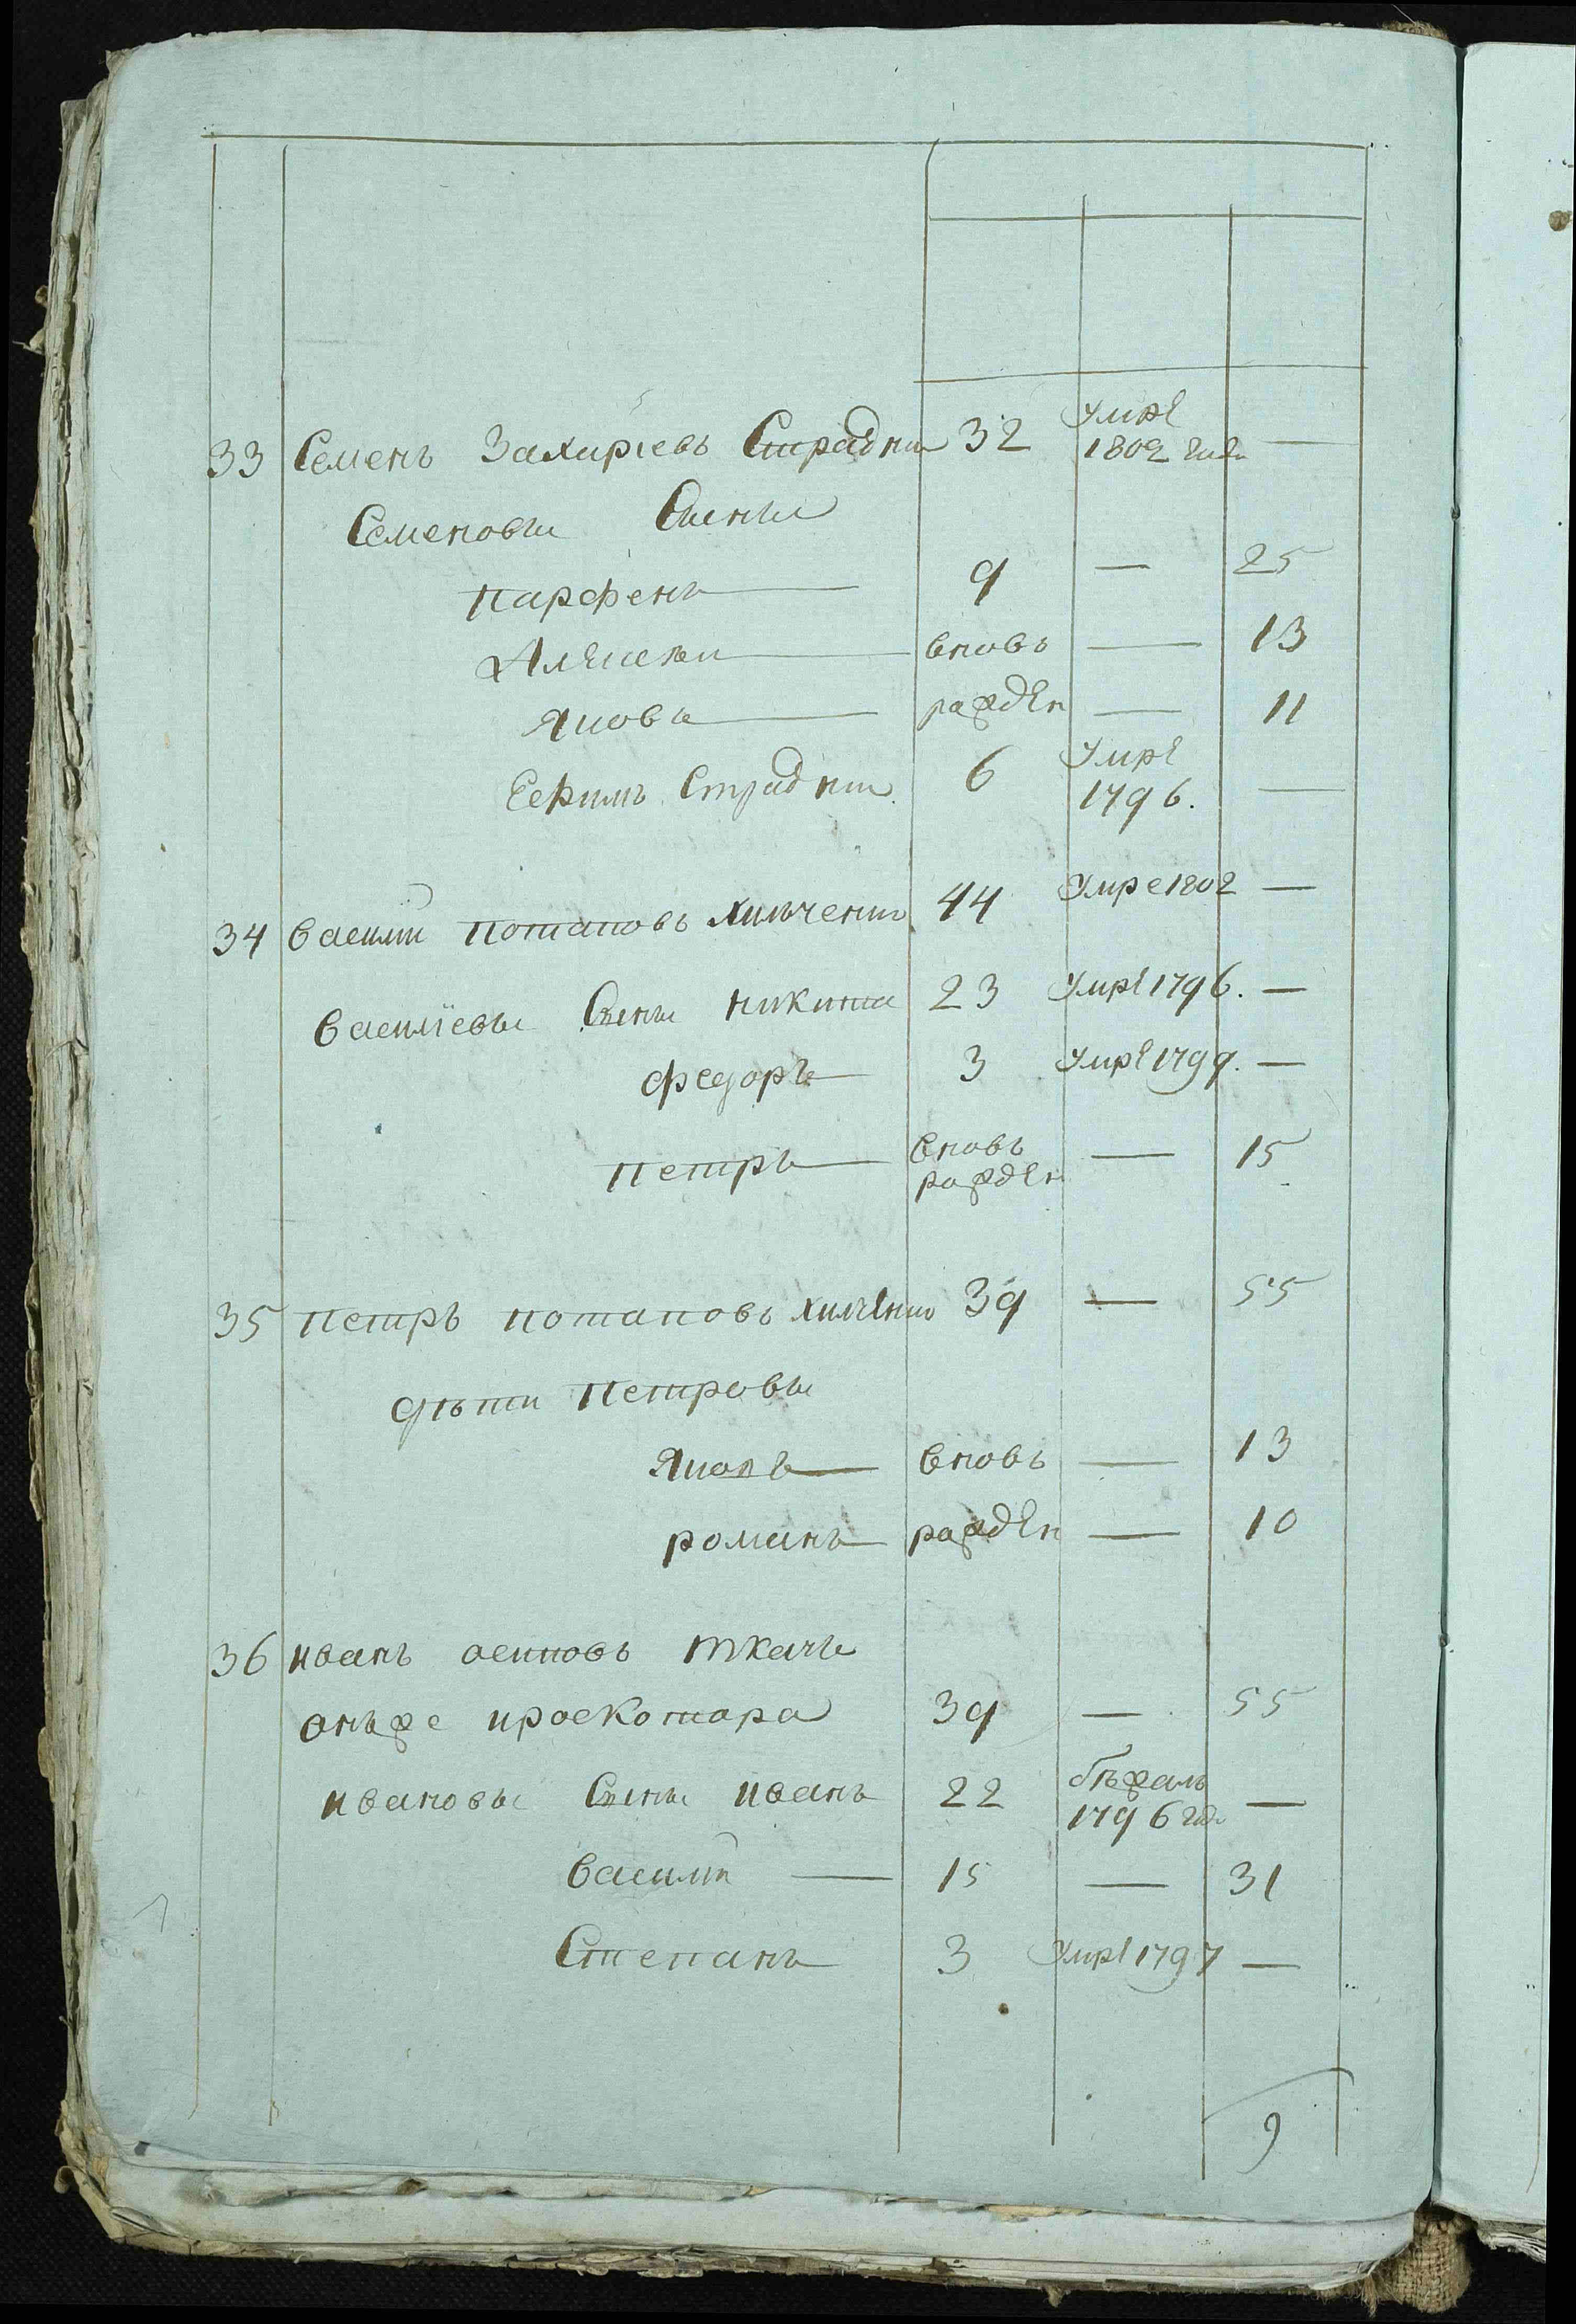 умре
33 Семенъ Захариевъ Страдни 32 1802 года —
Семеновы Сыны
парфенъ — 9 — 25
Алексеи — вновь — 13
Яковъ — рожден — 11
Ефимъ Страдни 6 умре 1796. —
34 василий потаповъ хильченко 44 умре 1802 —
василиевы Сыны никита 23 умре 1796. —
федоръ — 3 умре 1799. —
петръ — вновь рожден — 15
35 петръ потаповъ хилченко 39 — 55
дѣти петровы
Яковъ — вновь — 13
романъ — рожден — 10
36 иванъ осиповъ ткачъ
онъже проскотара 39 — 55
ивановы Сыны иванъ 22 бѣжалъ 1796 год —
василий — 15 — 31
Степанъ 3 умре 1797 —
9